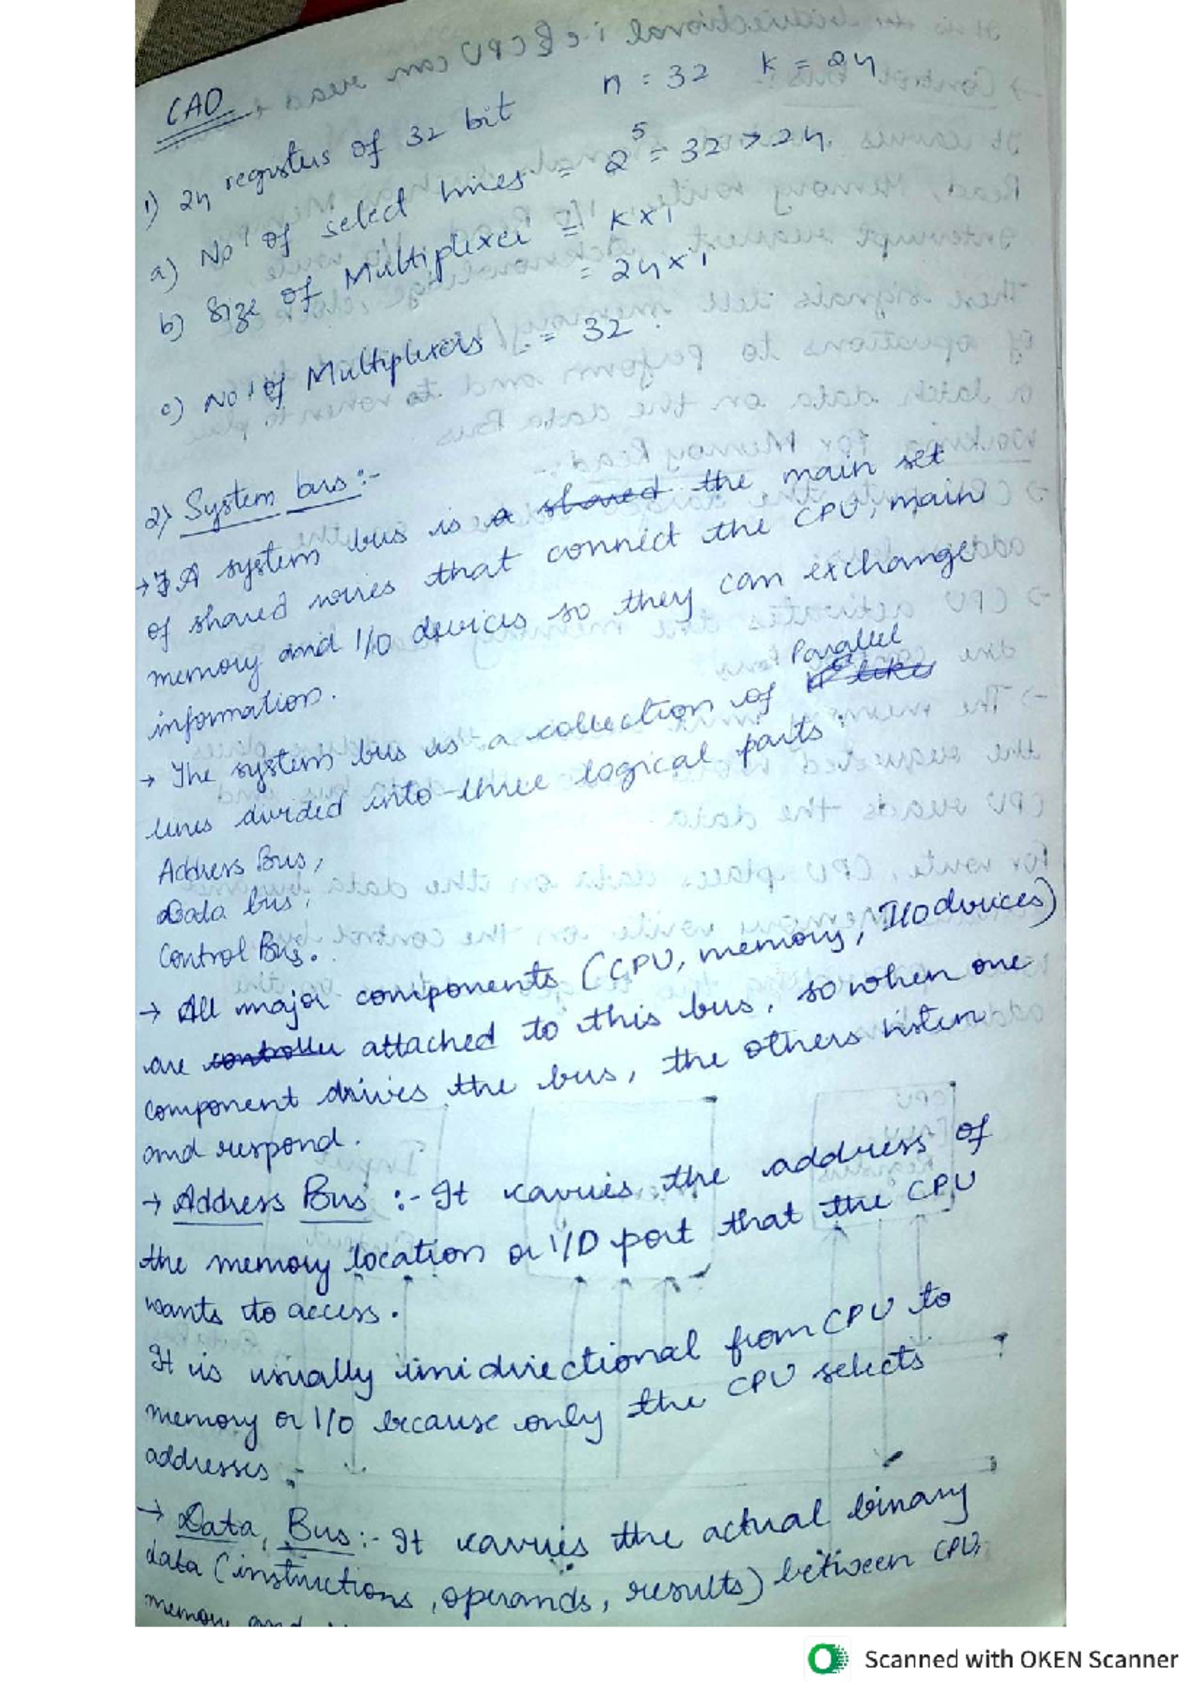 CAO
n = 32 k = 24
1) 24 registers of 32 bit
a) No' of select lines = 2^5 = 32 > 24
b) Size of Multiplexer = K x 1
= 24 x 1
c) No' of Multiplexers = 32.
2) System bus :-
→ A system bus is a shared the main set
of shared wires that connect the CPU, main
memory and I/O devices so they can exchange
information.
→ The system bus is a collection of Parallel
lines divided into three logical parts.
Address Bus,
Data bus,
Control Bus.
→ All major components (CPU, memory, I/O devices)
are controller attached to this bus, so when one
component drives the bus, the others listen
and respond.
→ Address Bus :- It carries the address of
the memory location or I/O port that the CPU
wants to access.
It is usually unidirectional from CPU to
memory or I/O because only the CPU selects
addresses.
→ Data Bus :- It carries the actual binary
data (instructions, operands, results) between CPU,
memory and
Scanned with OKEN Scanner